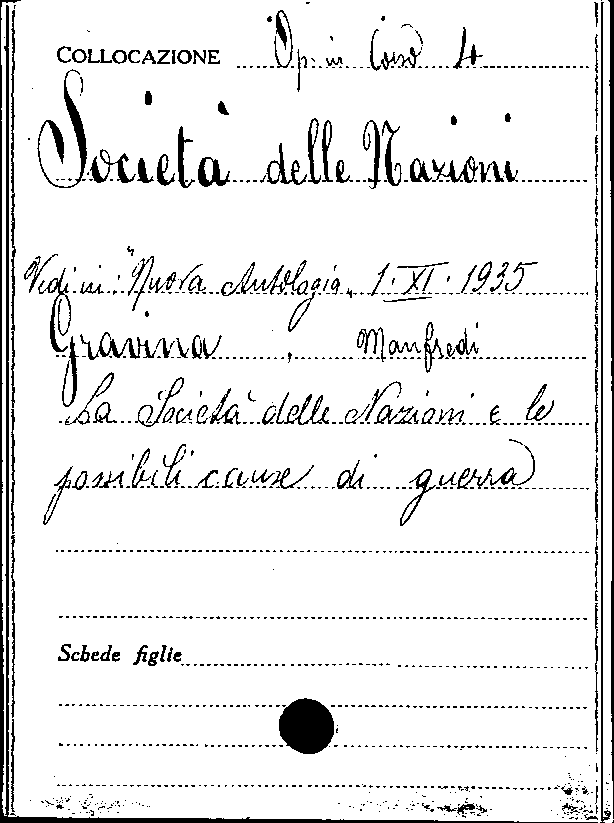 COLLOCAZIONE Op. in Corso 4
Società delle Nazioni
Vedi in: "Nuova Antologia„ 1·XI·1935
Gravina, Manfredi
La Società delle Nazioni e le
possibili cause di guerra
Schede figlie